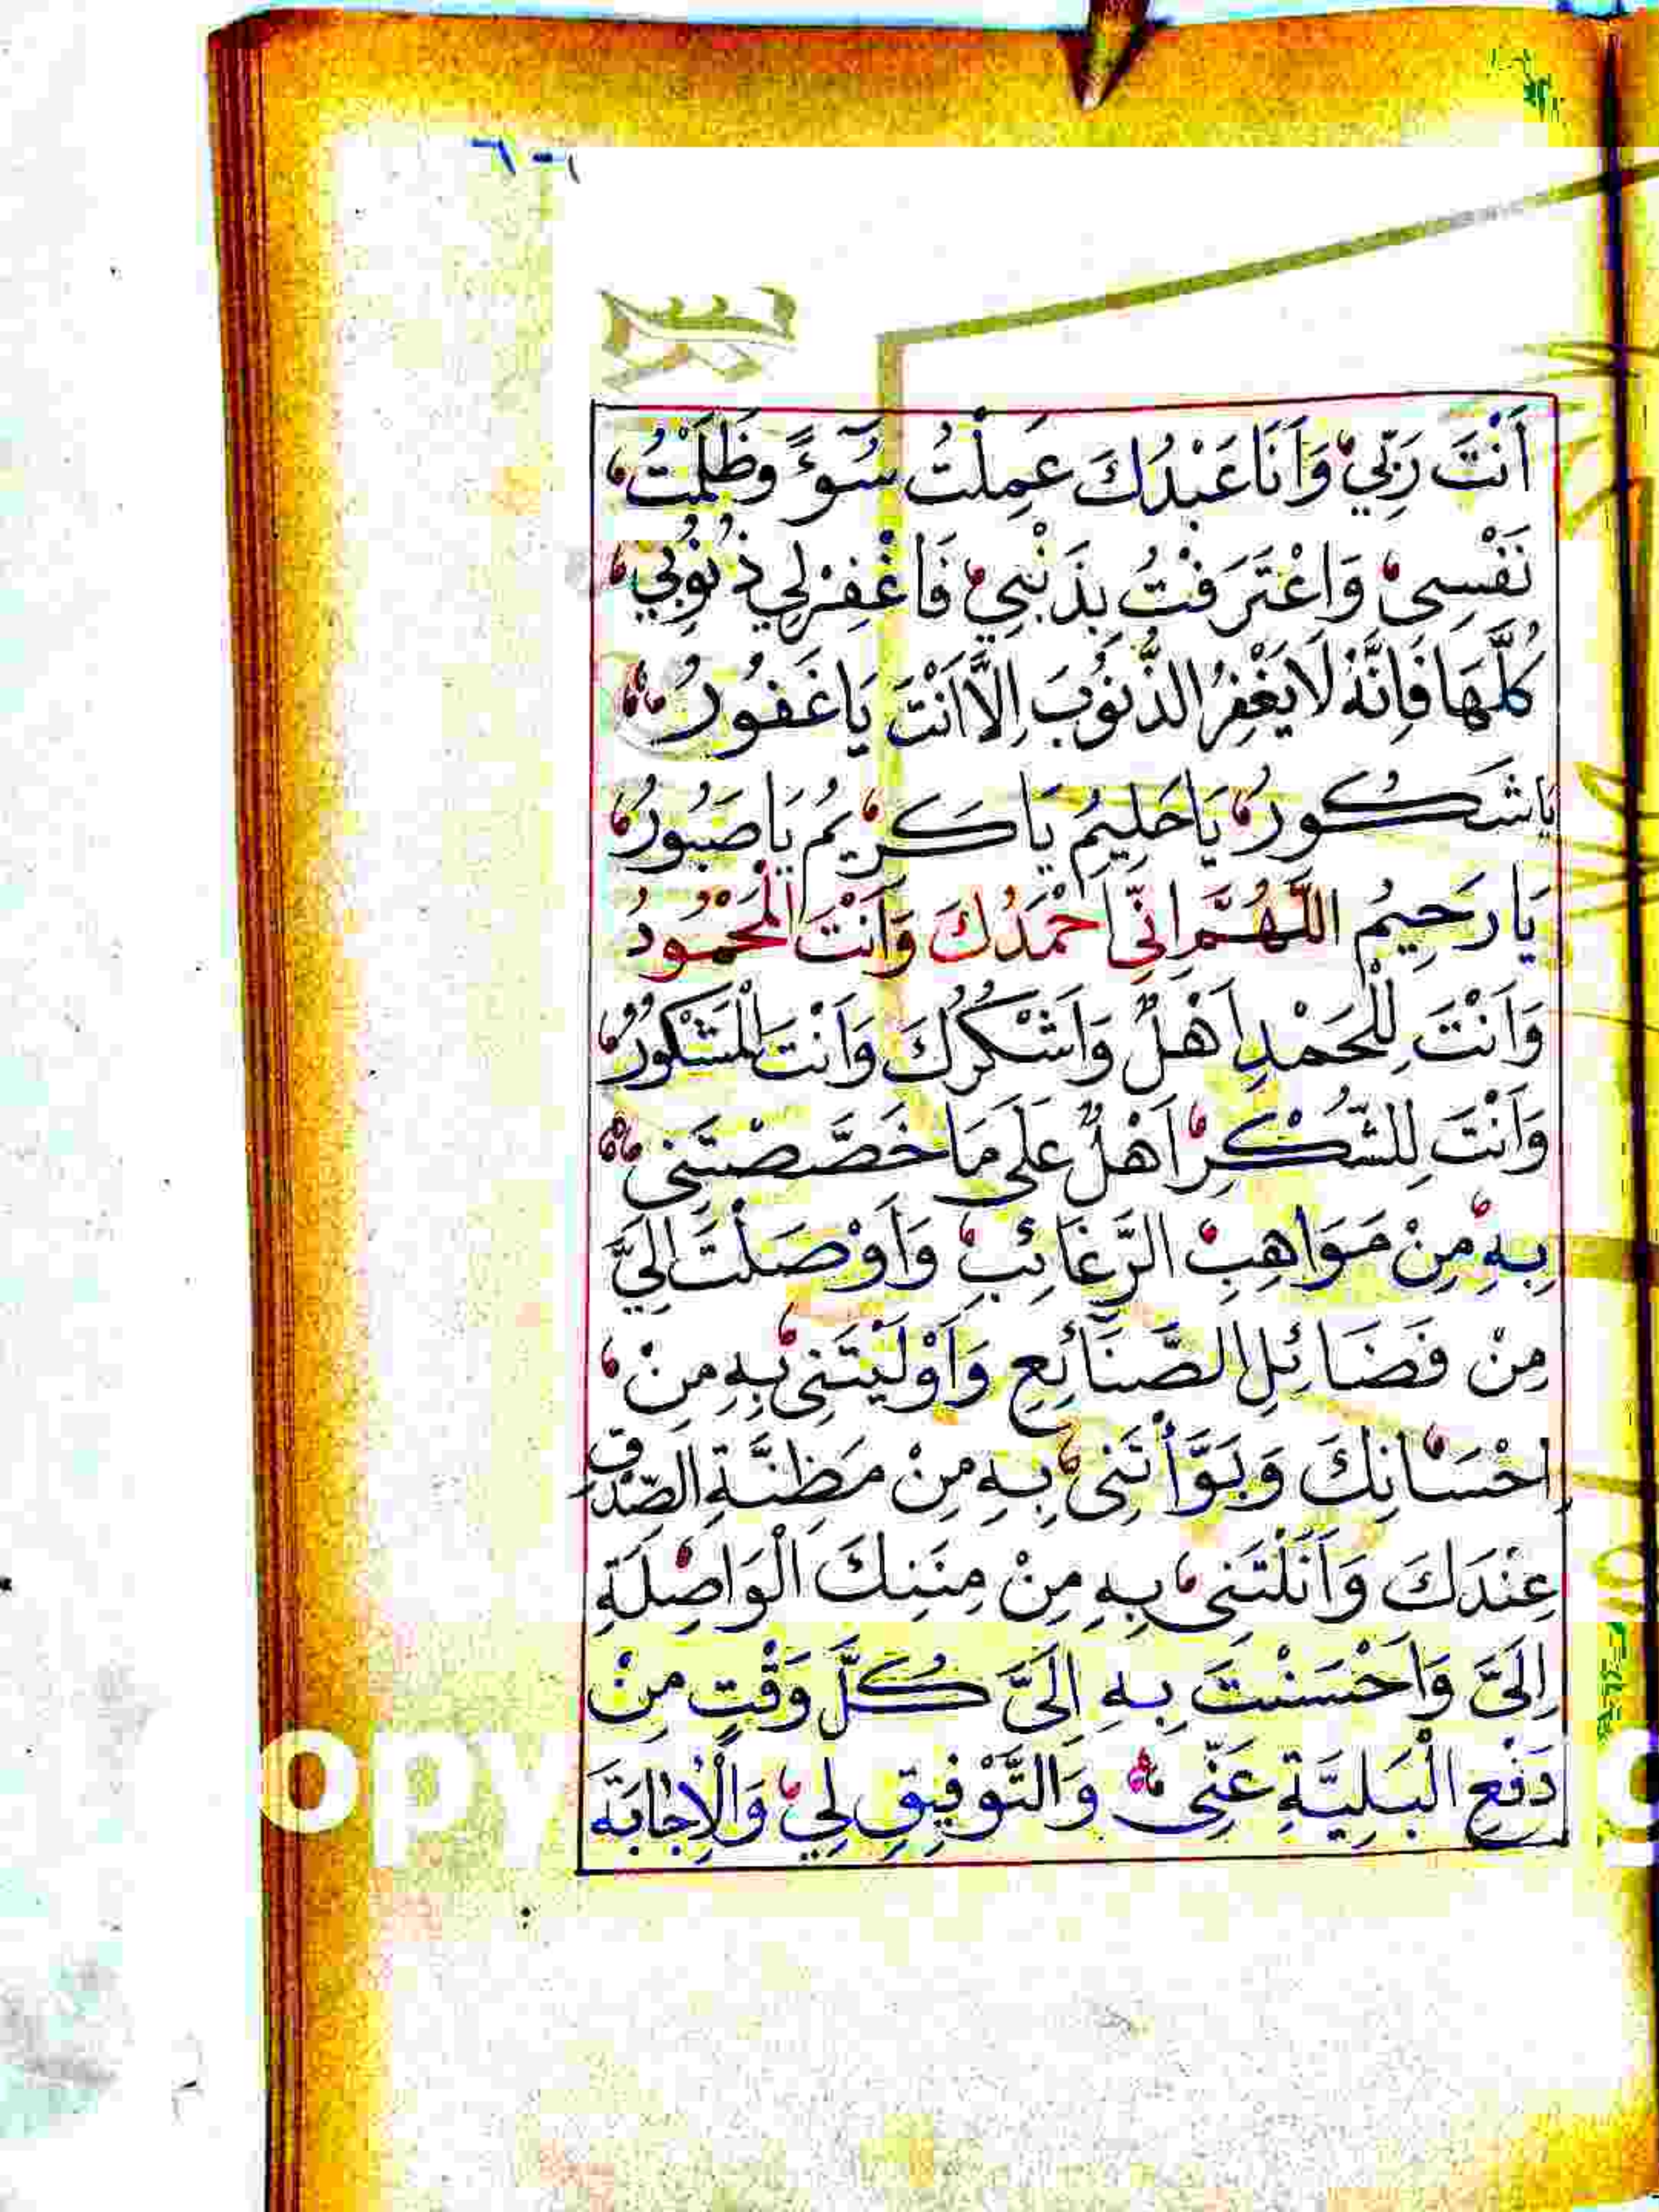 اَنْتَ رَبِّيْ وَاَنَا عَبْدُكَ عَمِلْتُ سُوْٓءً وَظَلَمْتُ
نَفْسِىْ وَاعْتَرَفْتُ بِذَنْبِيْ فَاغْفِرْلِيْ ذُنُوْبِي
كُلَّهَا فَاِنَّهٗ لَا يَغْفِرُ الذُّنُوْبَ اِلَّا اَنْتَ يَا غَفُوْرُ
يَا شَكُوْرُ يَا حَلِيْمُ يَا كَرِيْمُ يَا صَبُوْرُ
يَا رَحِيْمُ اَللّٰهُمَّ اِنِّيْ اَحْمَدُكَ وَاَنْتَ الْمَحْمُوْدُ
وَاَنْتَ لِلْحَمْدِ اَهْلٌ وَاَشْكُرُكَ وَاَنْتَ الْمَشْكُوْرُ
وَاَنْتَ لِلشُّكْرِ اَهْلٌ عَلٰى مَا خَصَّصْتَنِى
بِهٖ مِنْ مَوَاهِبِ الرَّغَائِبِ وَاَوْصَلْتَ اِلَيَّ
مِنْ فَضَائِلِ الصَّنَآئِعِ وَاَوْلَيْتَنِىْ بِهٖ مِنْ
اِحْسَانِكَ وَبَوَّأْتَنِىْ بِهٖ مِنْ مَظِنَّةِ الصِّدْقِ
عِنْدَكَ وَاَنَلْتَنِىْ بِهٖ مِنْ مِنَنِكَ الْوَاصِلَةِ
اِلَىَّ وَاَحْسَنْتَ بِهٖ اِلَىَّ كُلَّ وَقْتٍ مِنْ
دَفْعِ الْبَلِيَّةِ عَنِّىْ وَالتَّوْفِيْقِ لِيْ وَالْاِجَابَةِ
opy